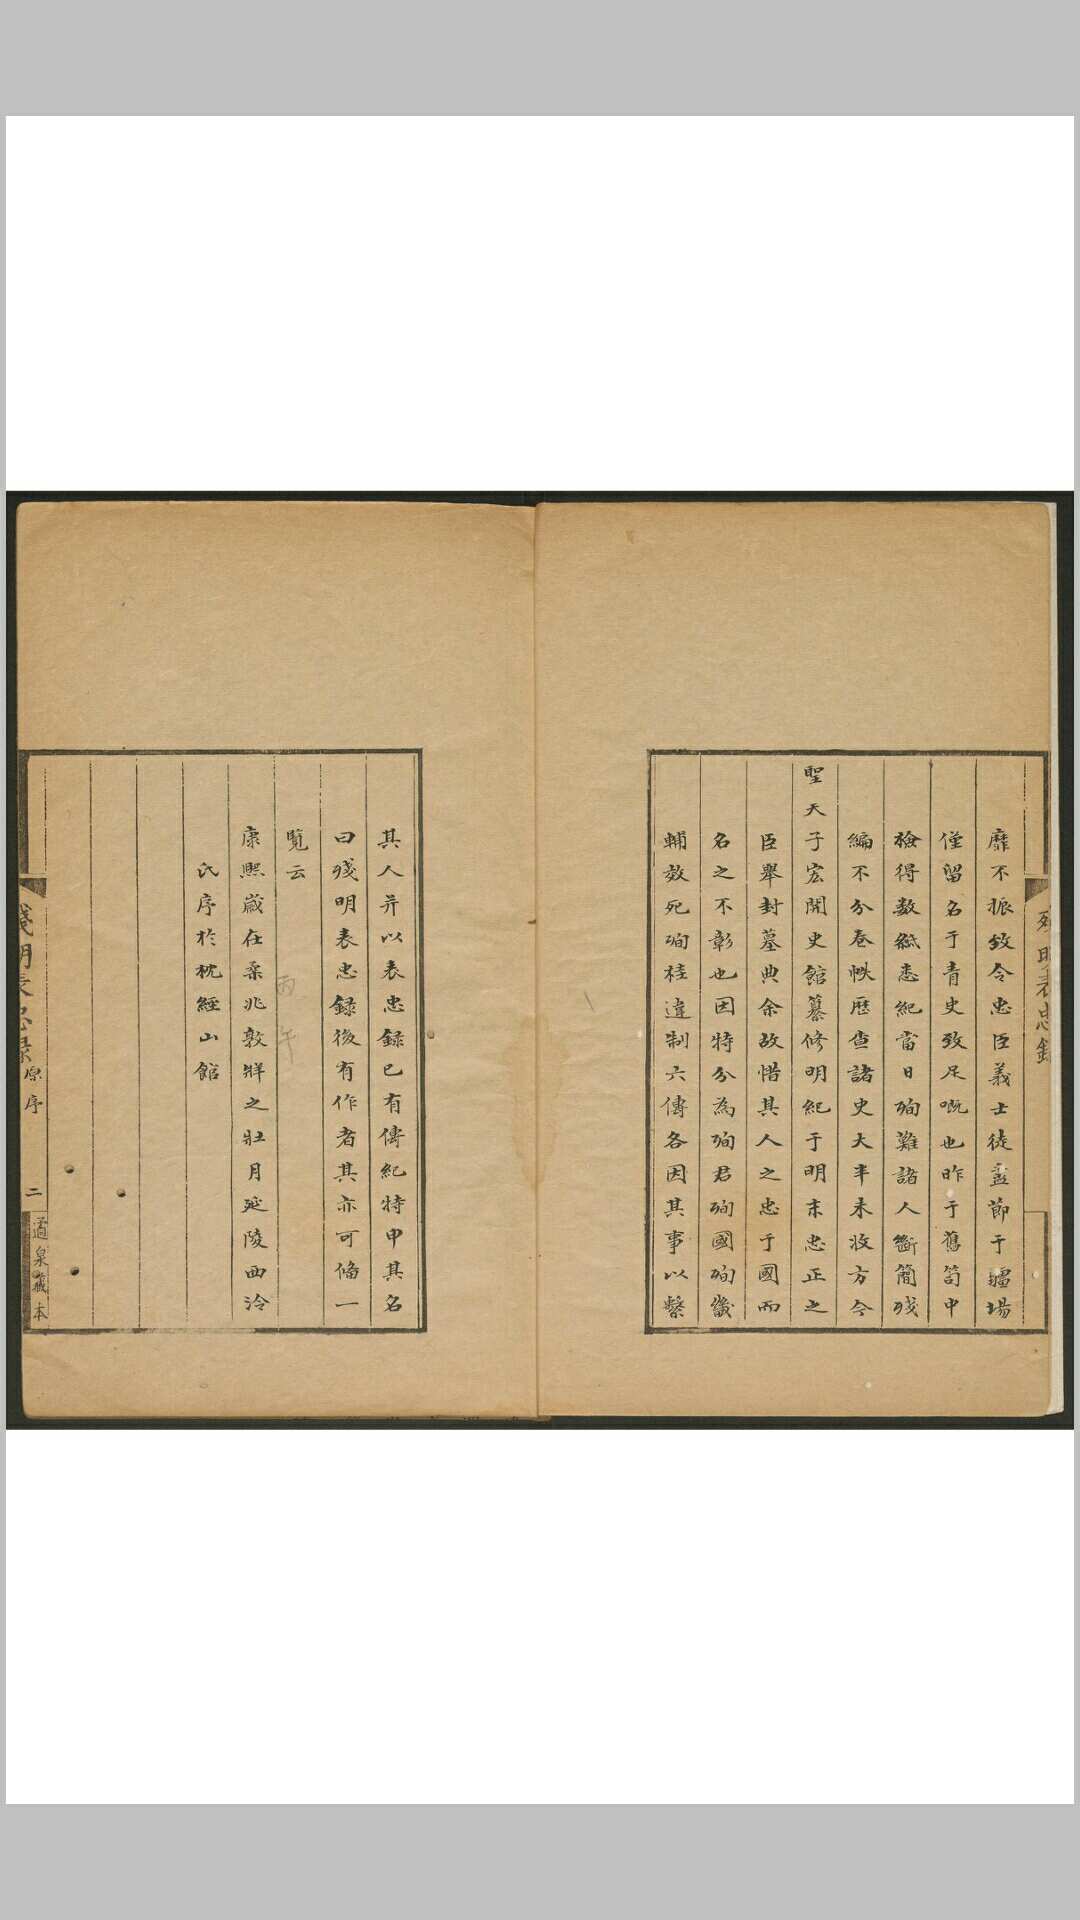 殘明表忠錄
靡不振致令忠臣義士徒盡節于疆場
僅留名于青史致足嘅也昨于舊笥中
檢得数紙悉紀當日殉難諸人斷簡殘
編不分卷帙歷查諸史大半未收方今
聖天子宏開史館纂修明紀于明末忠正之
臣舉封墓典余故惜其人之忠于國而
名之不彰也因特分為殉君殉國殉畿
輔效死殉桂違制六傳各因其事以繫
其人并以表忠錄已有傳紀特申其名
曰殘明表忠録後有作者其亦可俻一
覧云
丙午
康熙歲在柔兆敦牂之壯月延陵西泠
氏序於枕經山館
殘明表忠錄 原序 二 適泉藏本